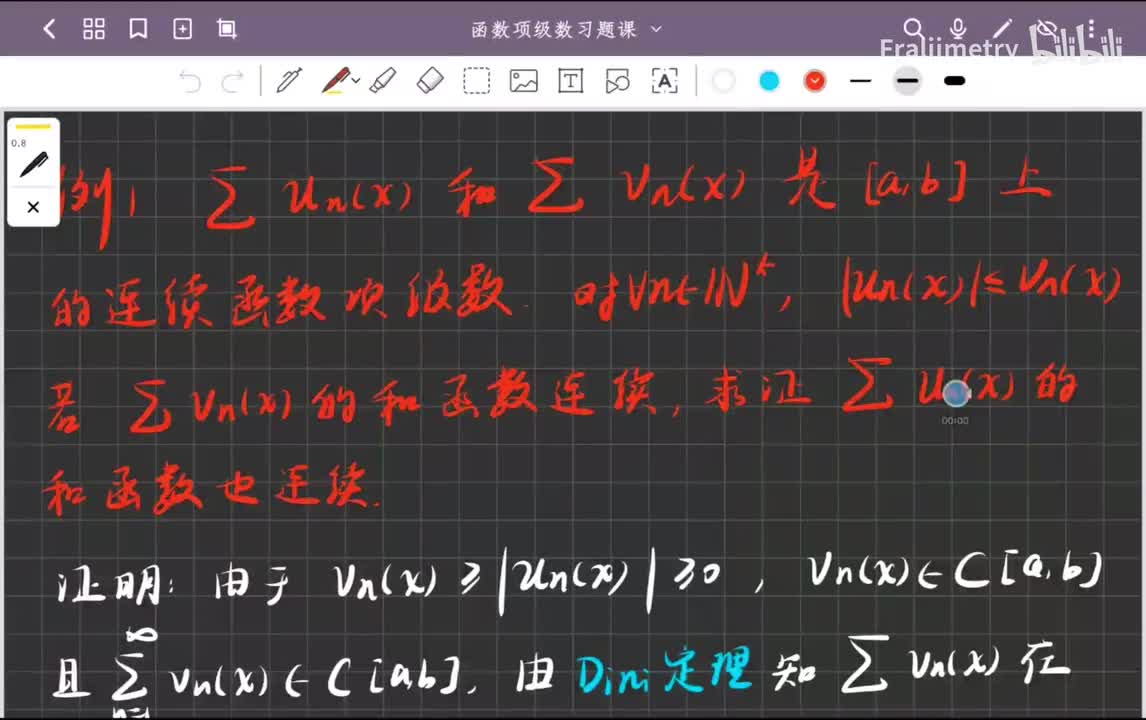 函数项级数习题课
Fraljimetry bilibili
0.8
例1 ∑ Un(x) 和 ∑ Vn(x) 是 [a,b] 上
的连续函数项级数. 对∀n∈IN*, |Un(x)|≤Vn(x)
若 ∑ Vn(x) 的和函数连续, 求证 ∑ U(x) 的
00:00
和函数也连续.
证明: 由于 Vn(x) ≥ |Un(x)| ≥0 , Vn(x)∈C[a,b]
且 ∞∑n=1 Vn(x)∈C[a,b], 由 Dini定理 知 ∑ Vn(x) 在